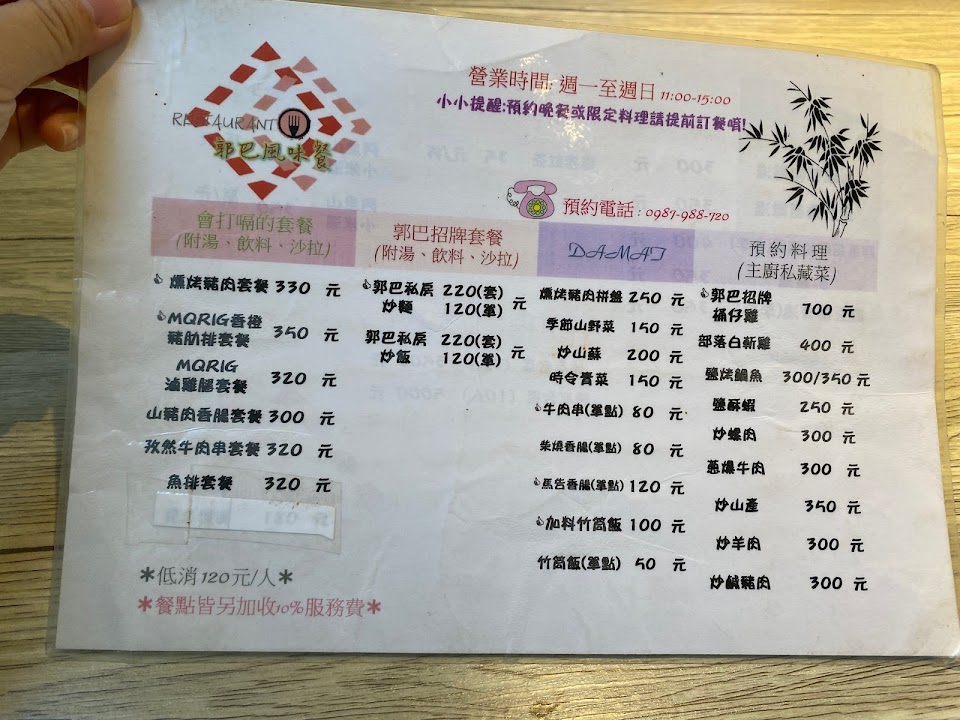 RESTAURANT
郭巴風味餐
營業時間: 週一至週日 11:00-15:00
小小提醒:預約晚餐或限定料理請提前訂餐唷!
預約電話:0987-988-720
會打嗝的套餐
(附湯、飲料、沙拉)
燻烤豬肉套餐 330 元
MQRIG香橙
豬肋排套餐 350 元
MQRIG
滷雞腿套餐 320 元
山豬肉香腸套餐 300 元
孜然牛肉串套餐 320 元
魚排套餐 320 元
*低消120元/人*
*餐點皆另加收10%服務費*
郭巴招牌套餐
(附湯、飲料、沙拉)
郭巴私房 220(套)
炒麵 120(單) 元
郭巴私房 220(套)
炒飯 120(單) 元
DAMAT
燻烤豬肉拼盤 250 元
季節山野菜 150 元
炒山蘇 200 元
時令青菜 150 元
牛肉串(單點) 80 元
柴燒香腸(單點) 80 元
馬告香腸(單點) 120 元
加料竹筒飯 100 元
竹筒飯(單點) 50 元
預約料理
(主廚私藏菜)
郭巴招牌
桶仔雞 700 元
部落白斬雞 400 元
鹽烤鯛魚 300/350 元
鹽酥蝦 250 元
炒螺肉 300 元
蔥爆牛肉 300 元
炒山產 350 元
炒羊肉 300 元
炒鹹豬肉 300 元